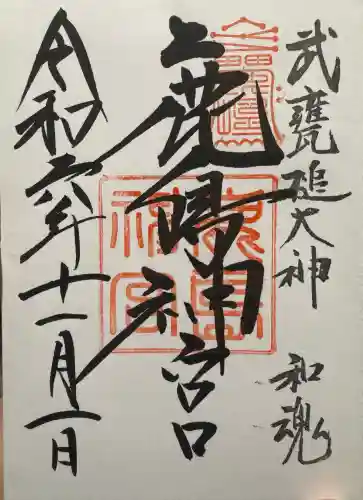 武甕槌大神　和魂
鹿嶋神宮
鹿島神宮
令和六年十一月一日